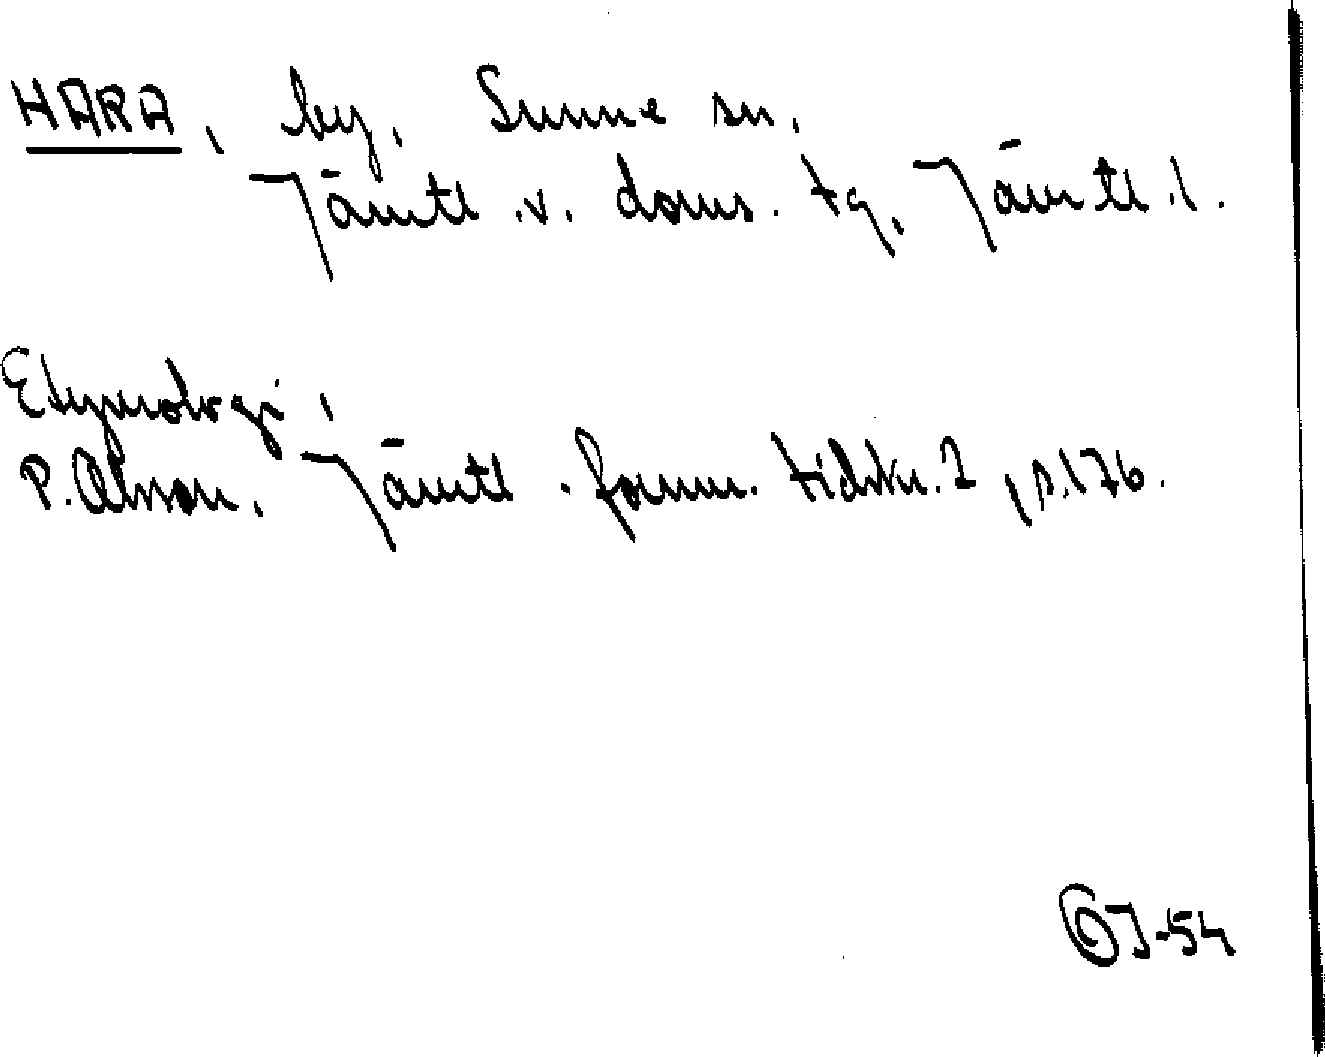 HARA, by, Sunne sn,
Jämtl. v. doms. tg, Jämtl. l.
Etymologi:
P. Olsson, Jämtl. fornm. tidskr. 2, s. 176.